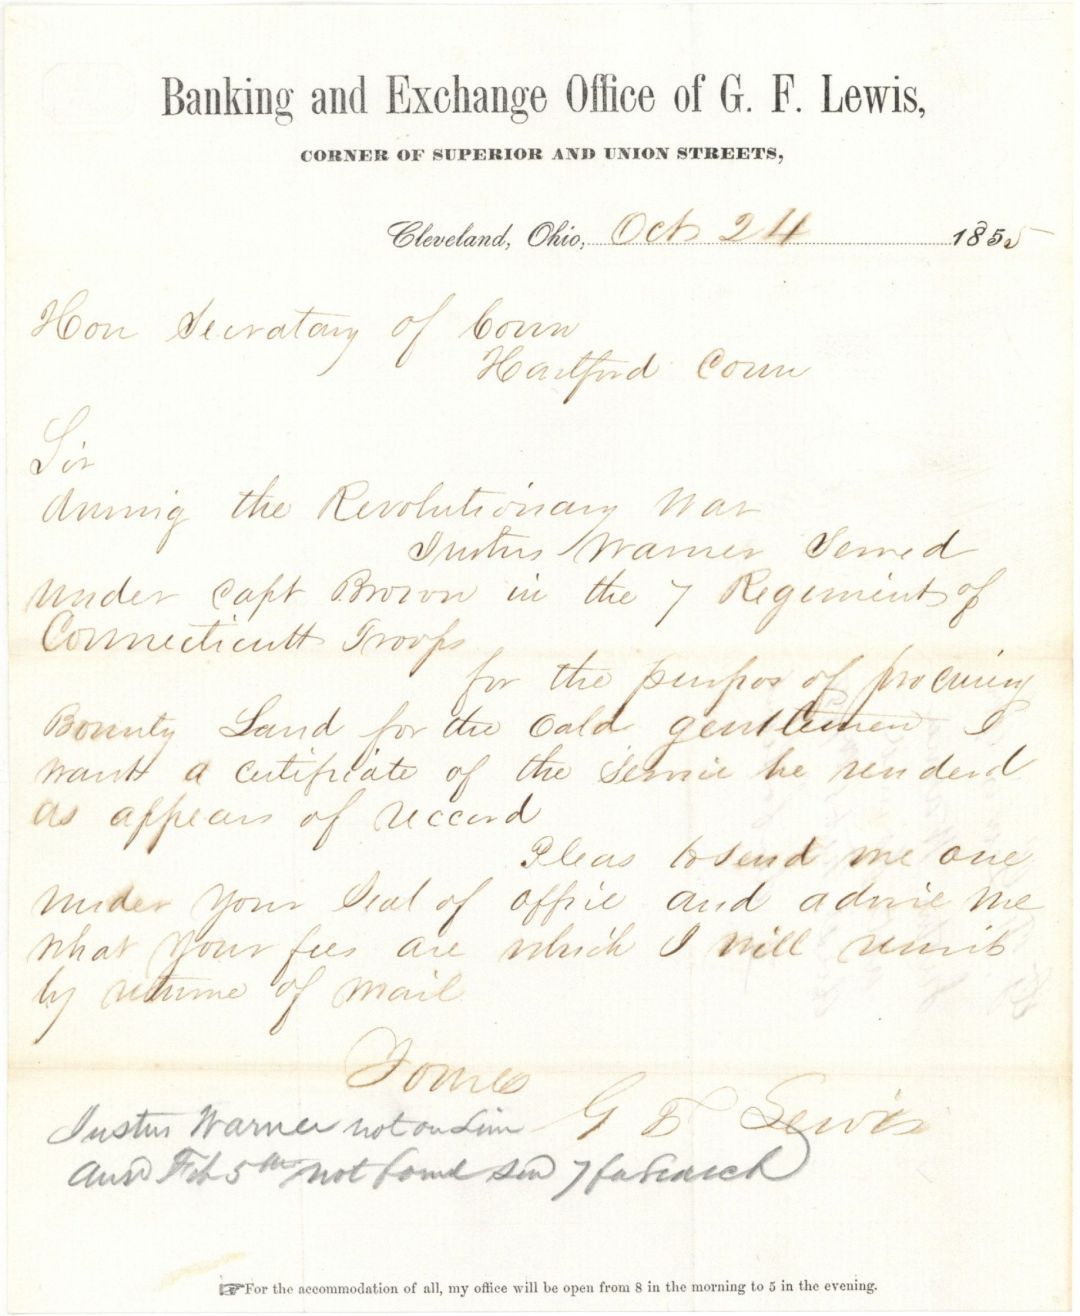 Banking and Exchange Office of G. F. Lewis,
CORNER OF SUPERIOR AND UNION STREETS,
Cleveland, Ohio, Oct 24 1855
Hon Secratary of Conn
Hartford Conn
Sir
during the Revolutionary War
Justus Warner Served
under Capt Brown in the 7 Regiment of
Connecticutt Troops
for the purpos of procuring
Bounty Land for the oald gentlemen I
want a certificate of the Service he renderd
as appears of reccord
Pleas to send me one
under your Seal of office and advise me
what your fees are which I will remit
by returne of mail
Yours
G F Lewis
Justus Warner not on
Feb 5th not found 7 search
☞For the accommodation of all, my office will be open from 8 in the morning to 5 in the evening.